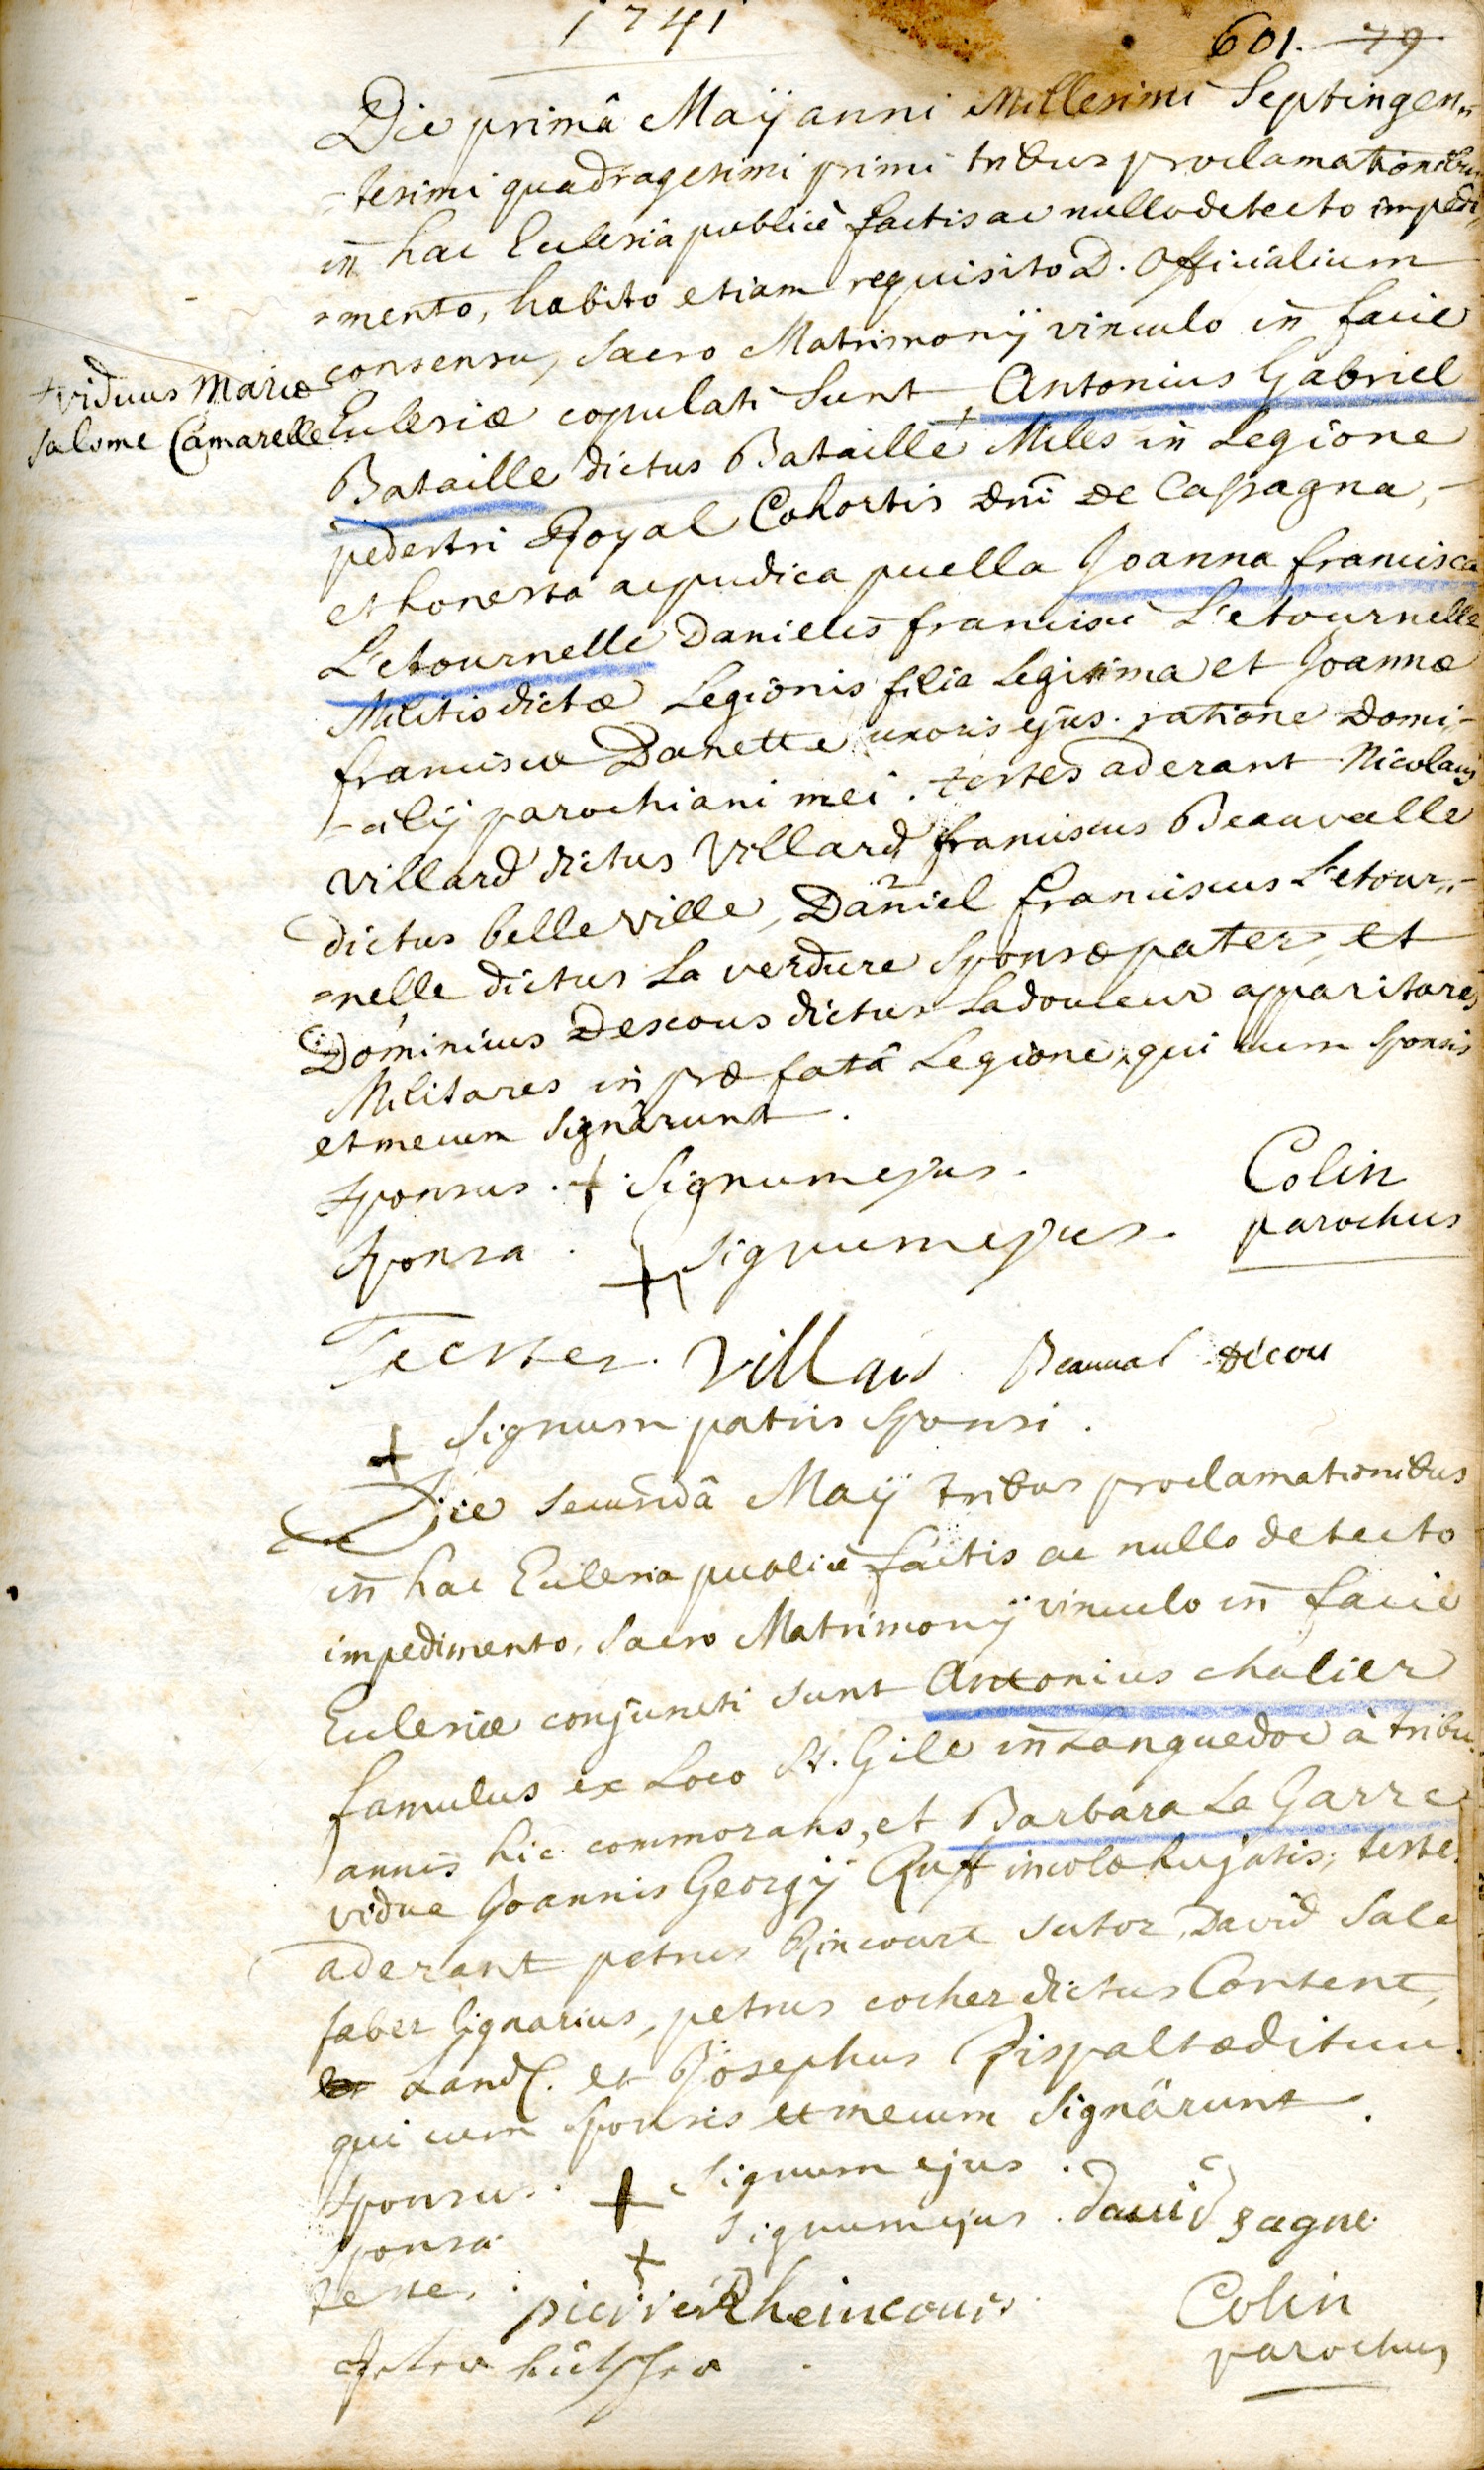 1741
601. 79
Die primâ Maÿ anni Millesimi Septingen„
-tesimi quadragesimi primi tribus proclamationibus
in hac Ecclesiâ publicè factis ac nullo detecto impedi„
=mento, habito etiam requisito D. Officialium
consensu, Sacro Matrimonÿ vinculo in facie
+ viduus Mariæ
Salome Camarelle
Ecclesiæ copulati Sunt + Antonius Gabriel
Bataille dictus Bataille Miles in Legione
pedestri Royal Cohortis Dni De Cassagna,
et honesta ac pudica puella Joanna francisca
L'etournelle Danielis francisci L'etournelle
Militis dictæ Legionis filia Legitima et Joannæ
franciscæ Danette uxoris ejus. ratione Domi-
-cilÿ parochiani mei. testes aderant Nicolaus
Villard dictus Villard, franciscus Beauvalle
dictus belleville, Daniel franciscus L'etour„
=nelle dictus La verdure Sponsæ pater, et
Dominicus Descous dictus Ladouceur apparitores
Militares in præfatâ Legione, qui cum Sponsis
et mecum Signârunt.
Sponsus. + Signum ejus.
Colin
parochus
Sponsa. + Signum ejus.
Testes. Villard Beauval Décou
+ Signum patris Sponsi.
Die Secundâ Maÿ tribus proclamationibus
in hac Ecclesia publicè factis ac nullo detecto
impedimento, Sacro Matrimonÿ vinculo in facie
Ecclesiæ conjuncti Sunt Antonius chalier
famulus ex Loco St. Gile in Languedoc à tribus
annis hic commorans, et Barbara La Garre
vidua Joannis Georgÿ Ruff incolæ hujatis; testes
aderant petrus Rincourt Sutor, David Sale
faber lignarius, petrus cocher dictus Content,
et Josephus Rispalt ædituus
qui cum Sponsis et mecum Signârunt.
Sponsus. + Signum ejus.
Sponsa + Signum ejus. david sagne
testes. pierre Rheincours
Colin
parochus